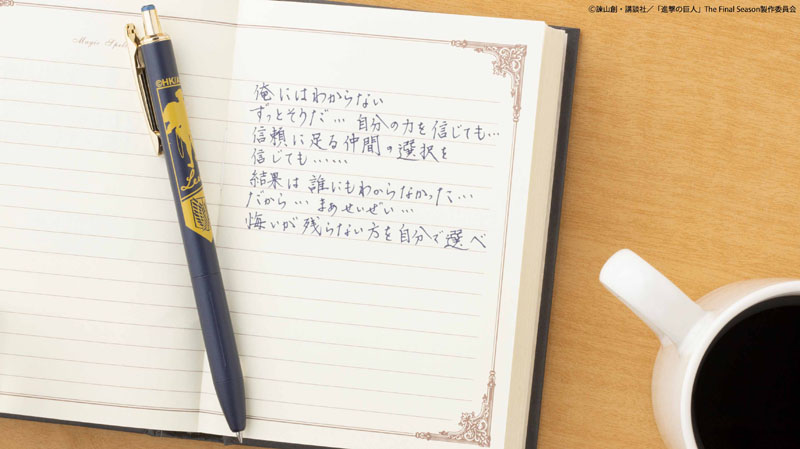 ©諫山創・講談社/「進撃の巨人」The Final Season製作委員会
Magic Spel
©HKA
Lev
俺にはわからない
ずっとそうだ… 自分の力を信じても…
信頼に足る仲間の選択を
信じても……
結果は誰にもわからなかった…
だから… まぁせいぜい…
悔いが残らない方を自分で選べ